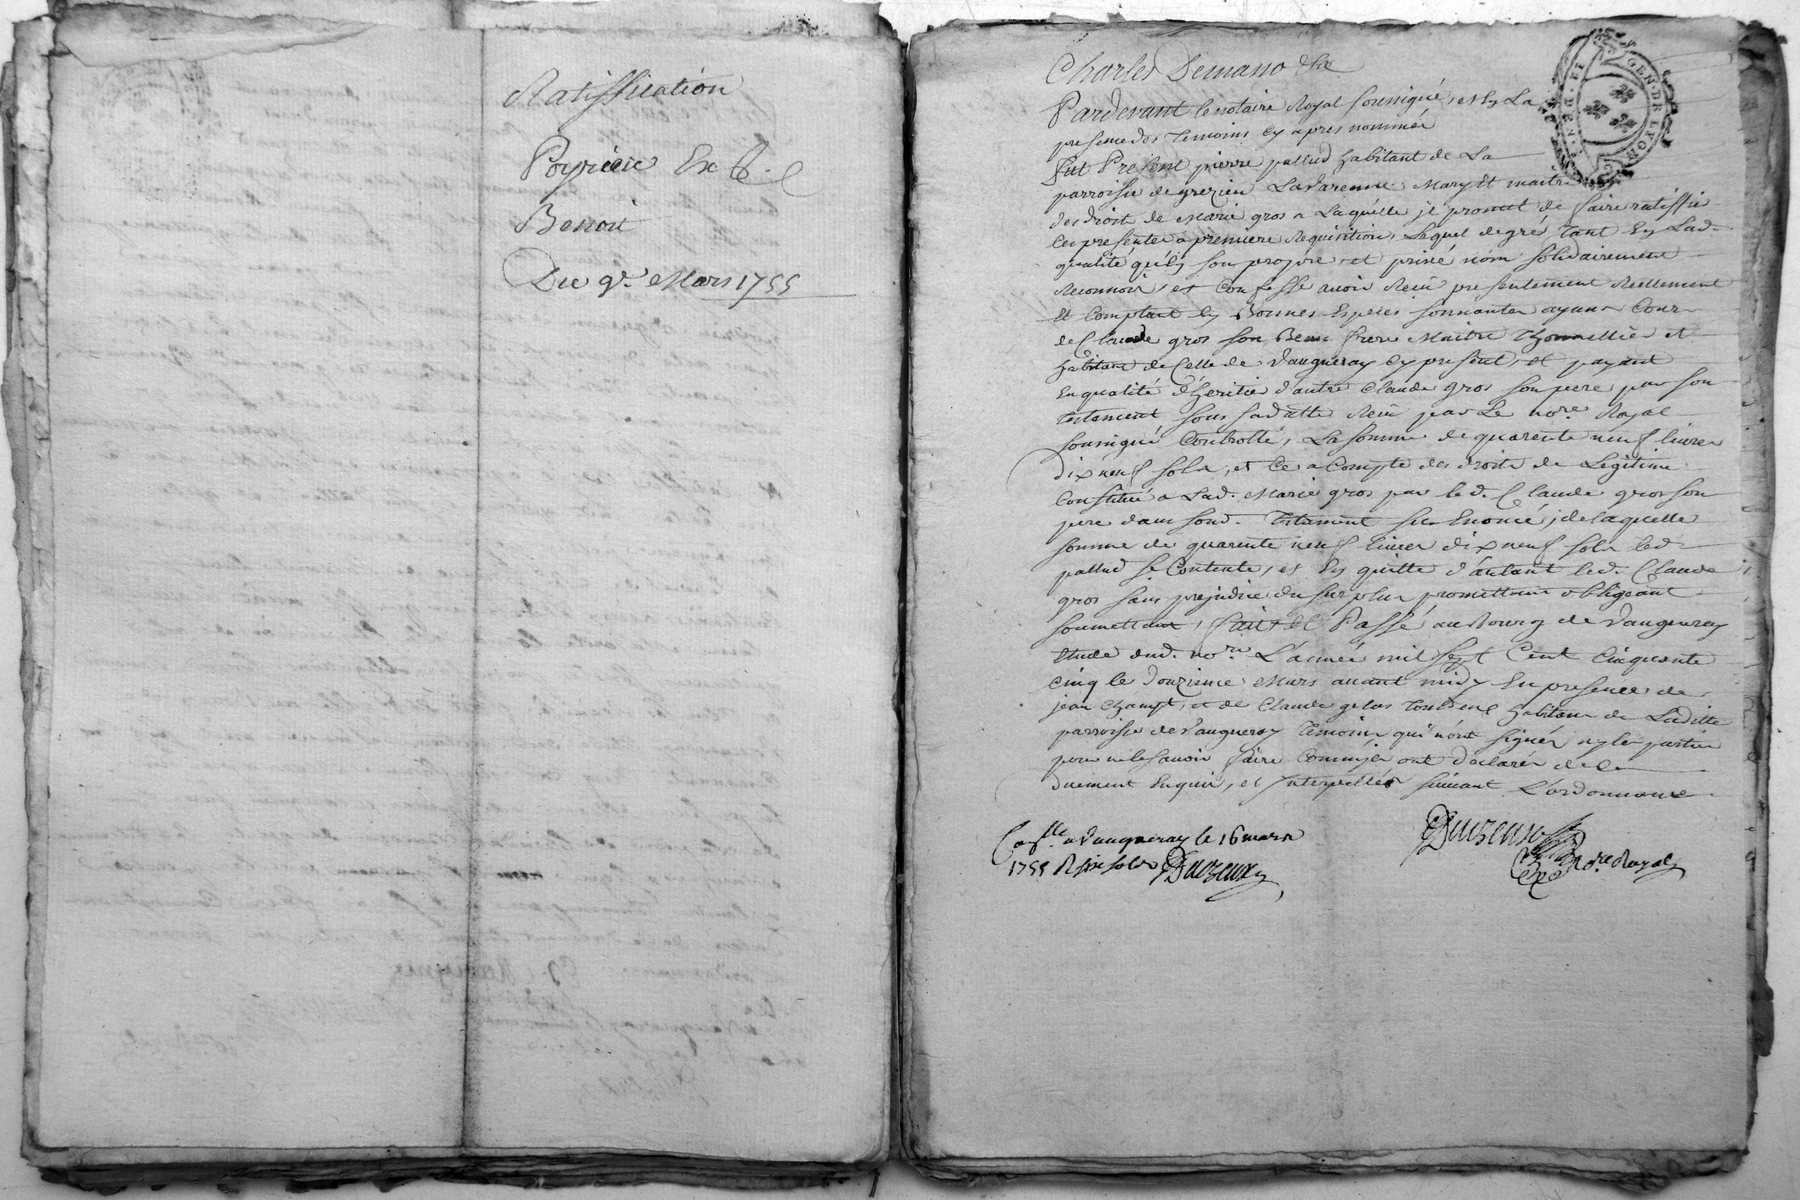 Ratiffication
Poyrieie
Benoit
Du 9e. Mars 1755
GEN. DE LYON
Charles Demano
Pardevant le notaire Royal soussigné, et En La
presence des Temoins Cy apres nommés
Fut Present pierre pallud habitant de La
parroisse de grezieu Lavarenne Mary Et maitre
des droits de Marie gros a Laquelle jl promet de faire ratiffier
les presentes a premiere Requisition, Lequel de gré tant En Lad.
qualité qu'En son propre et privé nom solidairement
Reconnoit, et Confesse avoir Reçû presentement Reellement
Et Comptant En Bonnes Especes sonnantes ayans Cour
de Claude gros son Beau frere Maitre
habitant de Celle de Vaugneray Cy present, et payant
En qualité d'heritier d'autre Claude gros son pere par son
testament sous sa datte Reçû par Le nore. Royal
soussigné Controllé, La somme de quarente neuf livres
dix neuf sols, et Ce a Compte des droits de Legitime
Constitué a Lad. Marie gros par led. Claude gros son
pere dans sond. Testament sus Enoncé, de laquelle
somme de quarente neuf livres dix neuf sols led.
pallud se Contente, et En quitte d'autant led. Claude
gros sans prejudice du surplus promettant obligeant
soumettant, fait et Passé au Bourg de Vaugneray
Etude dud. nore. L'année mil sept Cent Cinquante
Cinq le douzieme Mars avant midy En presence de
jean Champt, et de Claude gelas habitans de Laditte
parroisse de Vaugneray Temoins qui n'ont signés ny les parties
pour ne le savoir faire Comm'jls ont declarés de Ce
duement Enquis, et jnterpellés suivant L'ordonnance
Collé. a Vaugneray le 16 mars
1755 R six sols
Nore. Royal